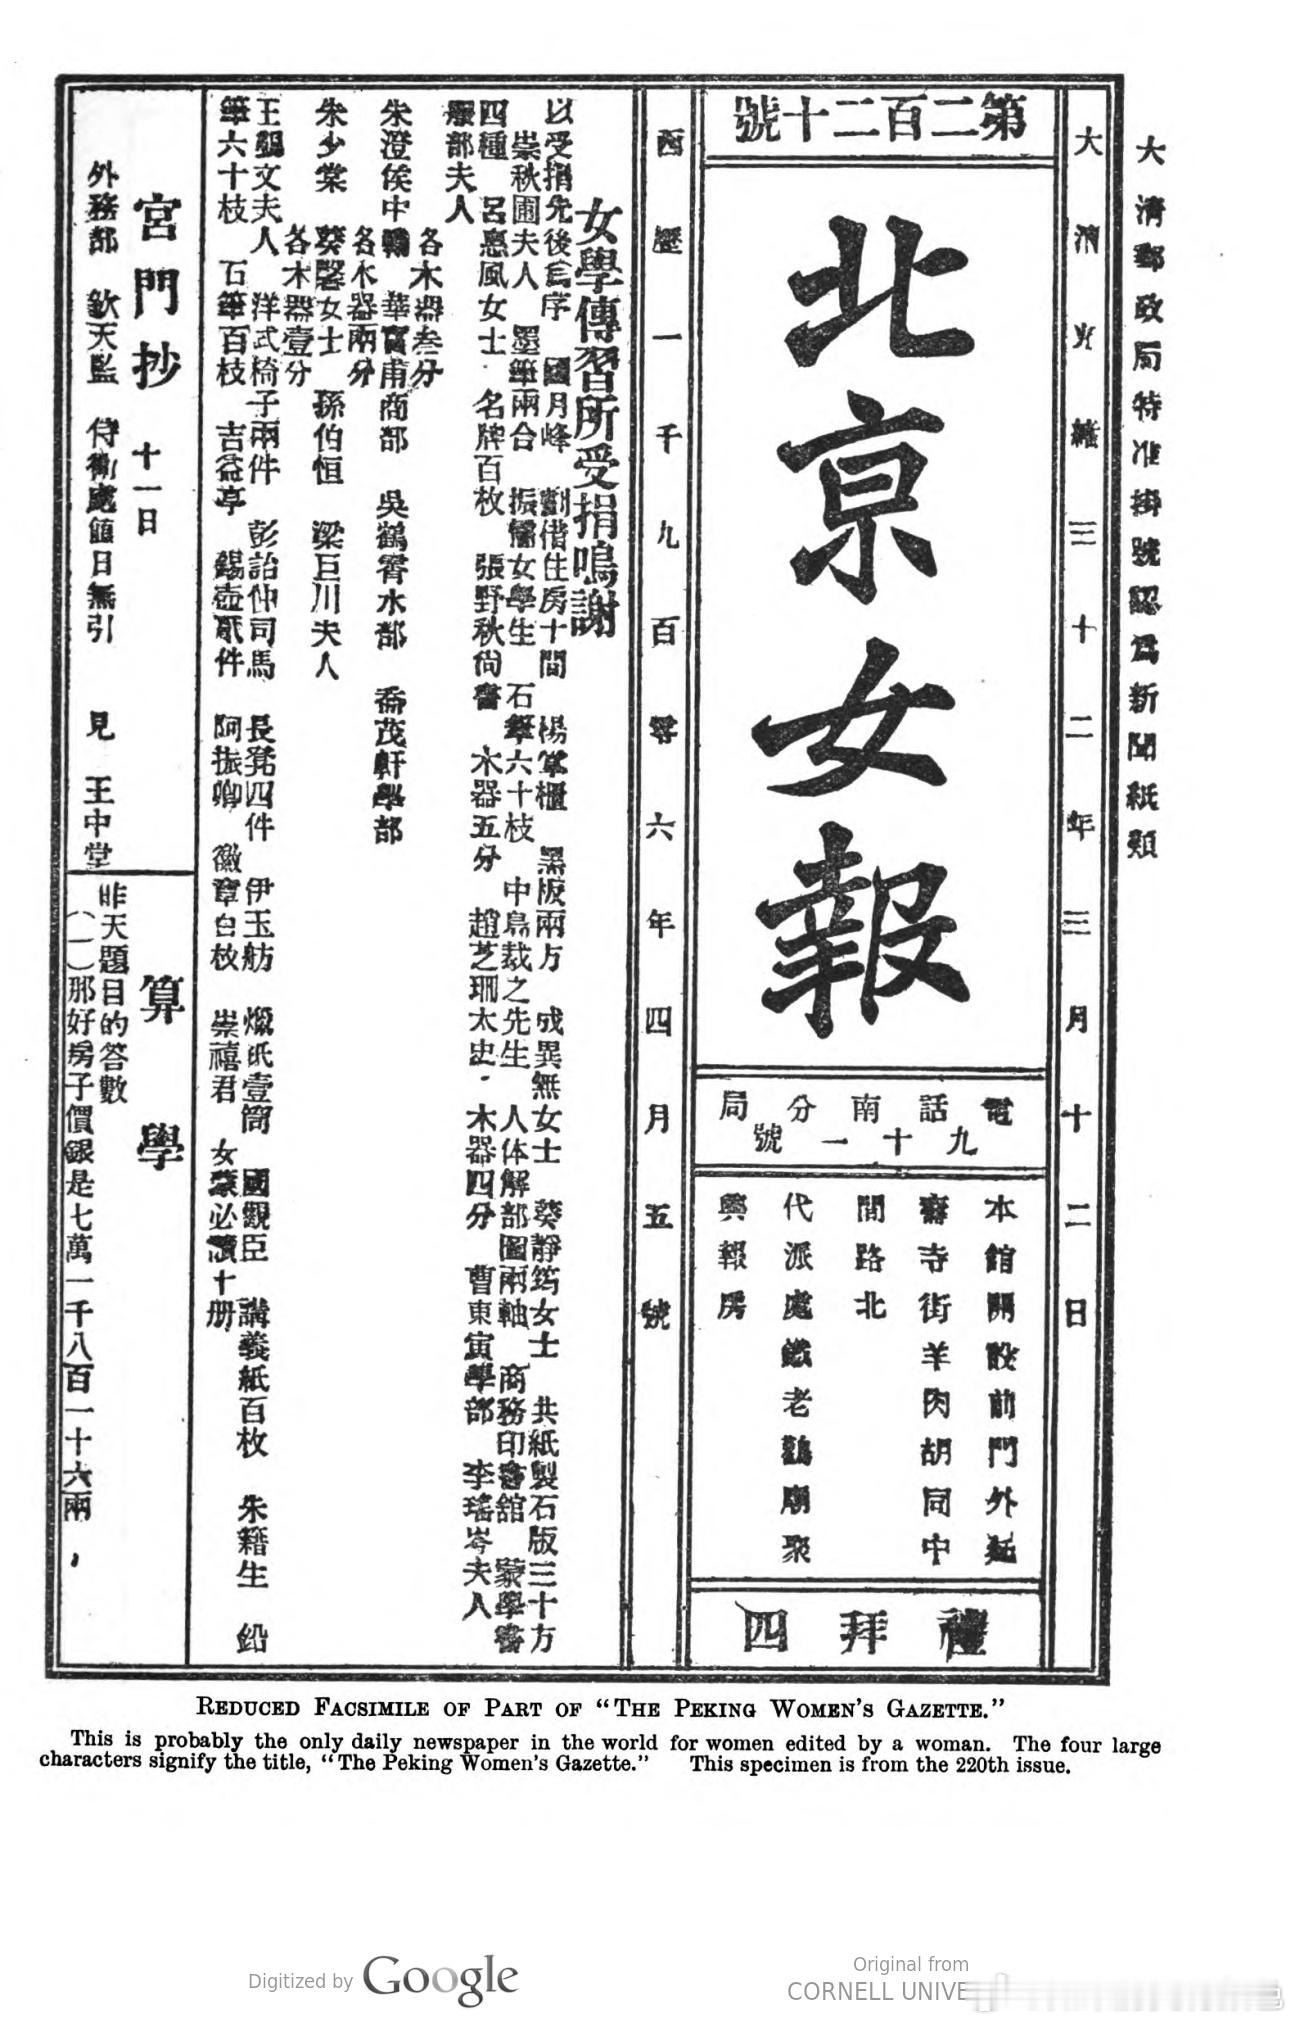 大清郵政局特准掛號認爲新聞紙類
大清光緒三十二年三月十二日
第二百二十號
北京女報
電話南分局
九十一號
本館開設前門外延
壽寺街羊肉胡同中
間路北
代派處鐵老鸛廟聚
興報房
禮拜四
西歷一千九百零六年四月五號
女學傳習所受捐鳴謝
以受捐先後爲序 國月峰 劃借住房十間 楊掌櫃 黑板兩方 成異無女士 葵靜筠女士 共紙製石版三十方
崇秋圃夫人 墨筆兩合 振懦女學生 石筆六十枝 中島裁之先生 人体解部圖兩軸 商務印書舘 蒙學書
四種 呂惠風女士 名牌百枚 張野秋尙書 木器五分 趙芝珊太史 木器四分 曹東寅學部 李瑤岑夫人
服部夫人
各木器叁分
朱澄侯中翰 華實甫商部 吳鶴霄水部 喬茂軒學部
各木器兩分
朱少棠 葵馨女士 孫伯恒 梁巨川夫人
各木器壹分
王弼文夫人 洋式椅子兩件 彭詒仲司馬 長凳四件 伊玉舫 爉紙壹筒 國觀臣 講義紙百枚 朱籍生 鉛
筆六十枝 石筆百枝 吉益亭 錫壺貳件 阿振卿 徽章百枚 崇禧君 女蒙必讀十册
宮門抄 十一日
外務部 欽天監 侍衛處値日無引 見 王中堂
算學
昨天題目的答數
（一）那好房子價銀是七萬一千八百一十六兩
REDUCED FACSIMILE OF PART OF “THE PEKING WOMEN’S GAZETTE.”
This is probably the only daily newspaper in the world for women edited by a woman. The four large
characters signify the title, “The Peking Women’s Gazette.” This specimen is from the 220th issue.
Digitized by Google
Original from
CORNELL UNIVE